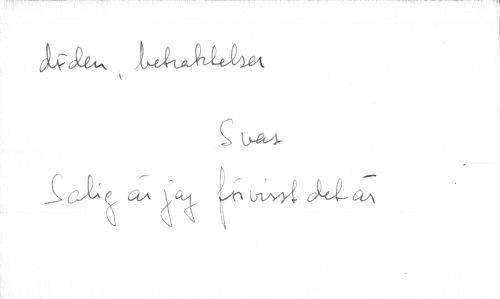 döden, betraktelser
Svar
Salig är jag förvisst det är